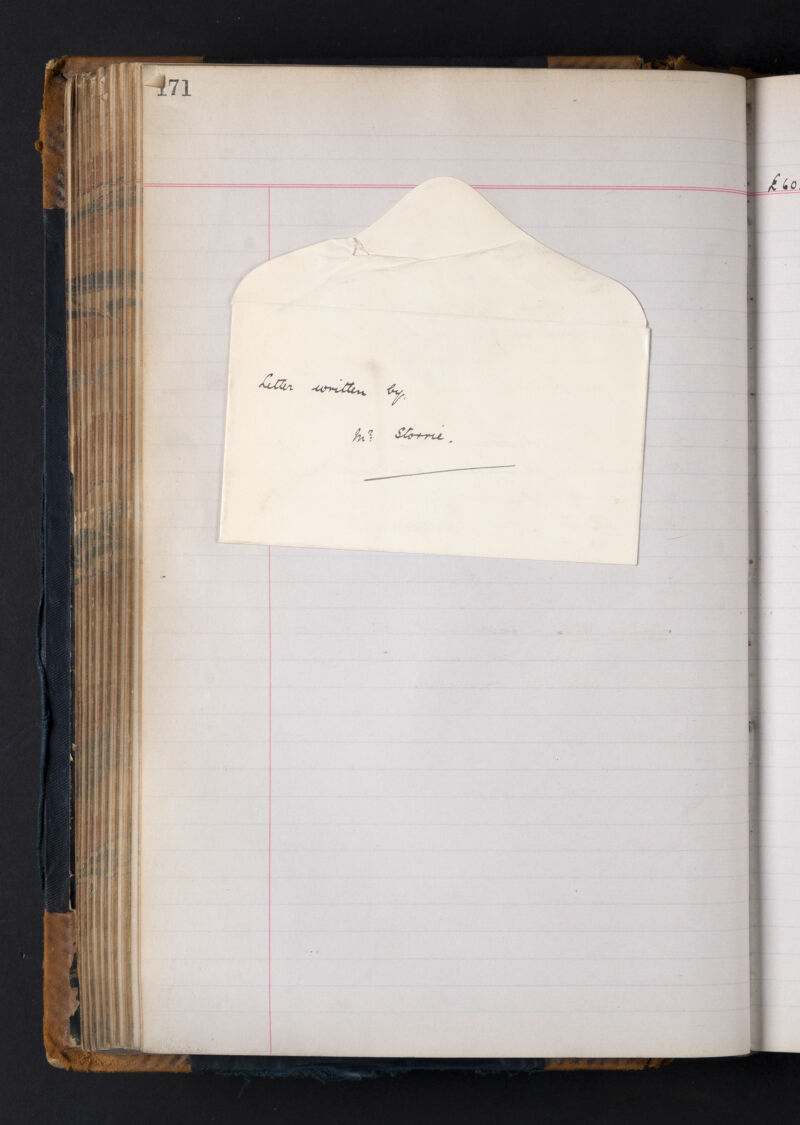 171
Letter written by.
Mr. Storrie.
£60.